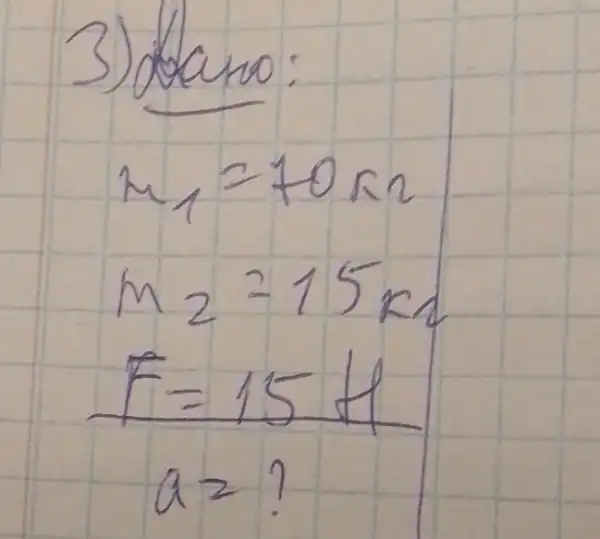 3) Дано:
m₁ = 70 кг
m₂ = 15 кг
F = 15 Н
a = ?